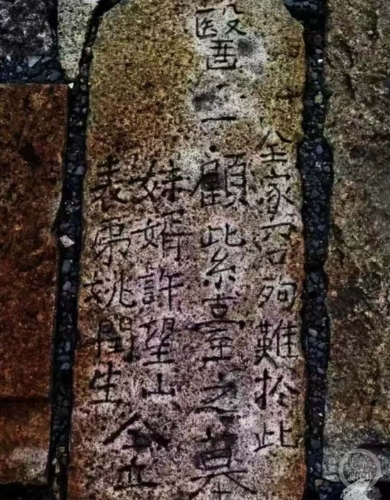 全家殉難於此
醫顧紫臺之墓
妹婿許望山
表弟姚閏生
仝立